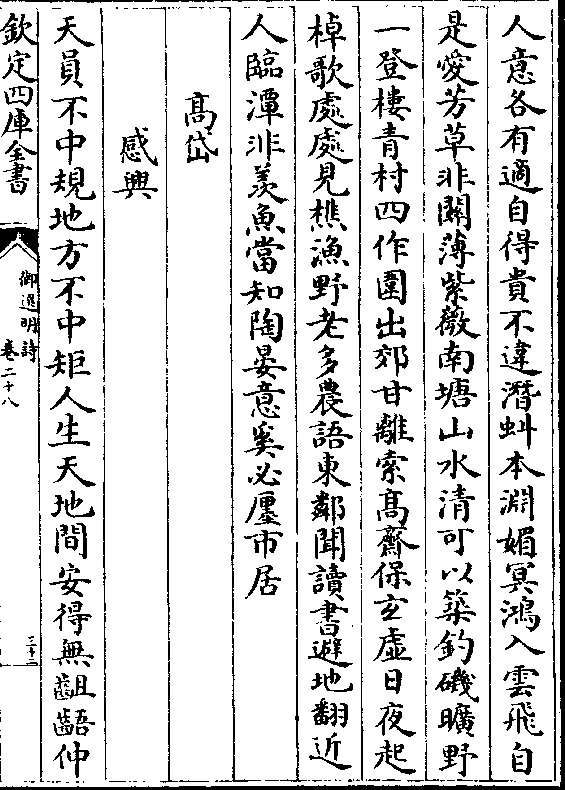 人意各有適自得貴不違潛虯本淵媚冥鴻入雲飛自
是愛芳草非關薄紫薇南塘山水清可以築釣磯曠野
一登樓青村四作圍出郊甘離索髙齋保玄虚日夜起
棹歌處處見樵漁野老多農語東鄰聞讀書避地翻近
人臨潭非羨魚當知陶晏意奚必廛市居
髙岱
感興
天員不中規地方不中矩人生天地間安得無齟齬仲
欽定四庫全書
御選明詩
卷二十八
三十二